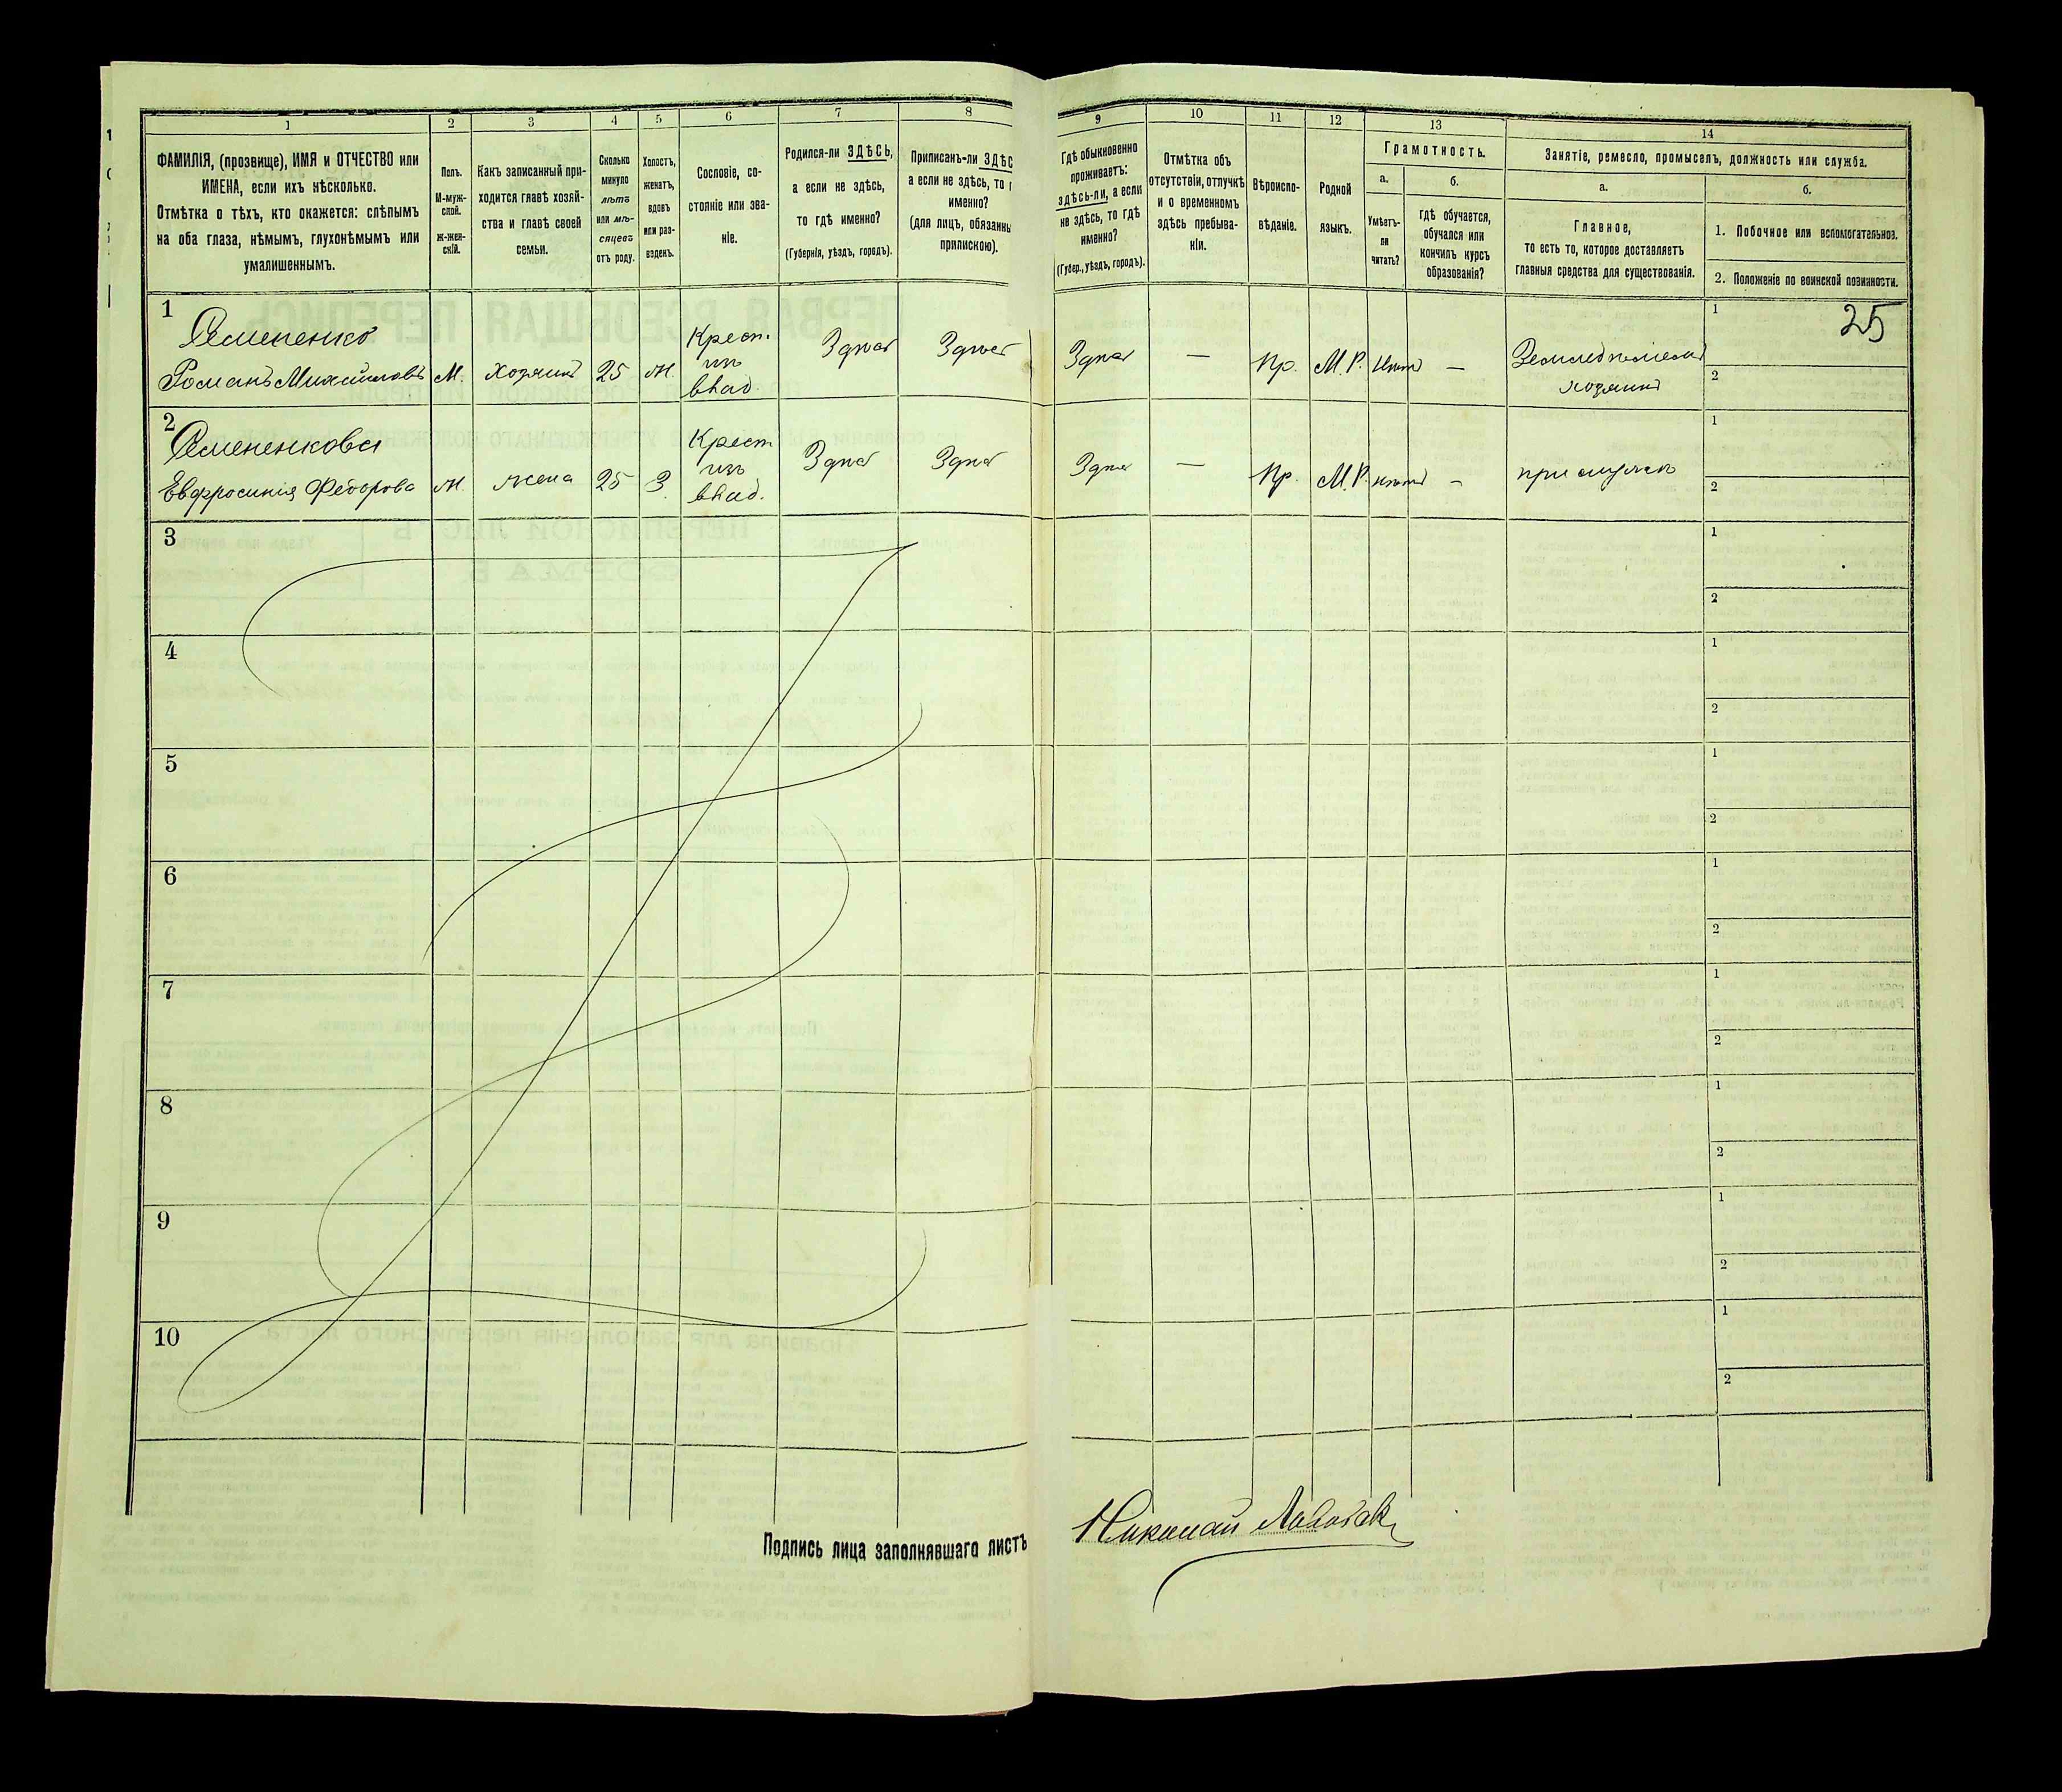 1
2
3
4
5
6
7
8
ФАМИЛІЯ, (прозвище), ИМЯ и ОТЧЕСТВО или
ИМЕНА, если ихъ нѣсколько.
Отмѣтка о тѣхъ, кто окажется: слѣпымъ
на оба глаза, нѣмымъ, глухонѣмымъ или
умалишеннымъ.
Полъ.
М-муж-
ской.
ж-жен-
скій.
Какъ записанный при-
ходится главѣ хозяй-
ства и главѣ своей
семьи.
Сколько
минуло
лѣтъ
или мѣ-
сяцевъ
отъ роду.
Холостъ,
женатъ,
вдовъ
или раз-
веденъ.
Сословіе, со-
стояніе или зва-
ніе.
Родился-ли ЗДѢСЬ,
а если не здѣсь,
то гдѣ именно?
(Губернія, уѣздъ, городъ).
Приписанъ-ли ЗДѢС
а если не здѣсь, то г
именно?
(для лицъ, обязанны
припискою).
9
10
11
12
13
14
Гдѣ обыкновенно
проживаетъ:
здѣсь-ли, а если
не здѣсь, то гдѣ
именно?
(Губер., уѣздъ, городъ).
Отмѣтка объ
отсутствіи, отлучкѣ
и о временномъ
здѣсь пребыва-
ніи.
Вѣроиспо-
вѣданіе.
Родной
языкъ.
Грамотность.
а.
Умѣетъ-
ли
читать?
б.
гдѣ обучается,
обучался или
кончилъ курсъ
образованія?
Занятіе, ремесло, промыселъ, должность или служба.
а.
Главное,
то есть то, которое доставляетъ
главныя средства для существованія.
б.
1. Побочное или вспомогательное.
2. Положеніе по воинской повинности.
25
1
Романъ Михайловъ М. Хозяинъ 25 Ж. Крест. изъ влад. Здѣсь Здѣсь Здѣсь — Пр. М.Р. нѣтъ — Земледѣлецъ
хозяинъ
1
2
2
Евфросинія Федорова Ж. жена 25 З. Крест изъ влад. Здѣсь Здѣсь Здѣсь — Пр. М.Р. нѣтъ — при мужѣ
1
2
3
1
2
4
1
2
5
1
2
6
1
2
7
1
2
8
1
2
9
1
2
10
1
2
Подпись лица заполнявшаго листъ
Николай